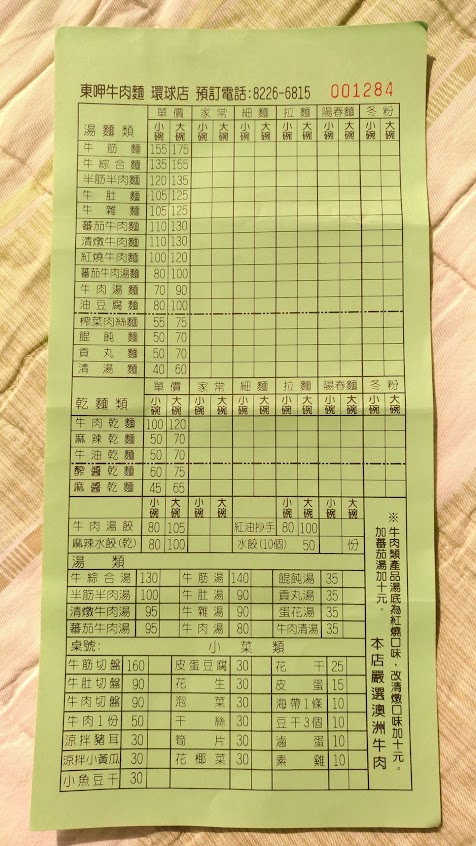 東呷牛肉麵 環球店 預訂電話:8226-6815 001284
單價 家常 細麵 拉麵 陽春麵 冬粉
湯麵類 小碗 大碗 小碗 大碗 小碗 大碗 小碗 大碗 小碗 大碗 小碗 大碗
牛筋麵 155 175
牛綜合麵 135 155
半筋半肉麵 120 135
牛肚麵 105 125
牛雜麵 105 125
蕃茄牛肉麵 110 130
清燉牛肉麵 110 130
紅燒牛肉麵 100 120
蕃茄牛肉湯麵 80 100
牛肉湯麵 70 90
油豆腐麵 80 100
榨菜肉絲麵 55 75
餛飩麵 50 70
貢丸麵 50 70
清湯麵 40 60
單價 家常 細麵 拉麵 陽春麵 冬粉
乾麵類 小碗 大碗 小碗 大碗 小碗 大碗 小碗 大碗 小碗 大碗 小碗 大碗
牛肉乾麵 100 120
麻辣乾麵 50 70
牛油乾麵 50 70
酢醬乾麵 60 75
麻醬乾麵 45 65
小碗 大碗 小碗 大碗 小碗 大碗 小碗 大碗
牛肉湯餃 80 105 紅油抄手 80 100
麻辣水餃(乾) 80 100 水餃(10個) 50 份
湯類
牛綜合湯 130 牛筋湯 140 餛飩湯 35
半筋半肉湯 100 牛肚湯 90 貢丸湯 35
清燉牛肉湯 95 牛雜湯 90 蛋花湯 35
蕃茄牛肉湯 95 牛肉湯 80 牛肉清湯 35
桌號: 小菜類
牛筋切盤 160 皮蛋豆腐 30 花干 25
牛肚切盤 90 花生 30 皮蛋 15
牛肉切盤 90 泡菜 30 海帶1條 10
牛肉1份 50 干絲 30 豆干3個 10
涼拌豬耳 30 筍片 30 滷蛋 10
涼拌小黃瓜 30 花椰菜 30 素雞 10
小魚豆干 30
※牛肉類產品湯底為紅燒口味，改清燉口味加十元。
加蕃茄湯加十元。
本店嚴選澳洲牛肉